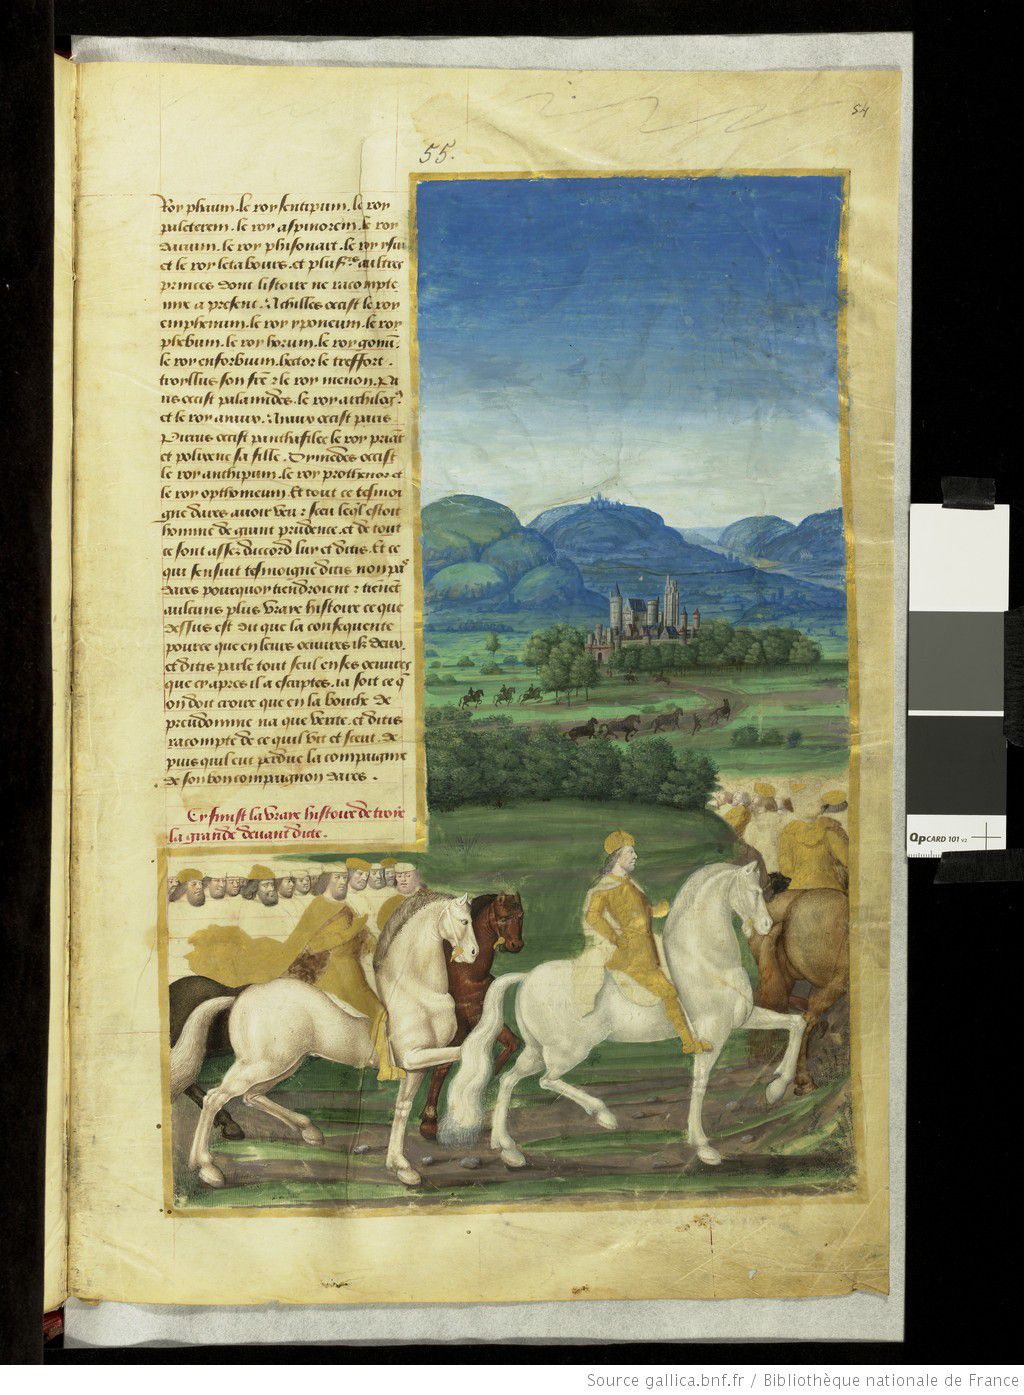 54
55.
Roy phaum. le roy sentipum. le roy
pileterem. le roy aspinorem. le roy
durum. le roy phisonart. le roy ysiu
et le roy letabours. et plusrs aultres
princes dont listoire ne racompte
mie a present. Achilles occist le roy
emphemum. le roy yponeum. le roy
phebum. le roy horum. le roy
le roy enforbium. hector le treffort.
troyllus son frē ⁊ le roy menon. Pa
ris occist palamides. le roy archilogꝰ
et le roy aniux. Aniux occist paris
Pirrus occist panthasilee le roy priāt
et polixene sa fille. Dymedes occist
le roy anthipum. le roy prothenor et
le roy opthomeum. Et tout ce tesmoi
gne dares avoir veu ⁊ sceu leql estoit
homme de grant prudence. et de tout
ce sont assez daccord luy et ditis. Et ce
qui sensuit tesmoigne ditis non pas
dares pourquoy tiendroient ⁊ tiēnēt
aulcuns plus vraye histoire ce que
dessus est dit que la consequente
pource que en leurs oeuvres ilz deux
et ditis parle tout seul en ses oeuvres
que cy apres il a escriptes. ia soit ce q̄
on doit croire que en la bouche de
preudomme na que verite. et ditis
racompte de ce quil vit et sceut. de
puis quil eut perdue la compaignie
de son bon compaignon dares.
Cy finist la vraye histoire de troye
la grande devant dicte.
QPCARD 101 v3
Source gallica.bnf.fr / Bibliothèque nationale de France